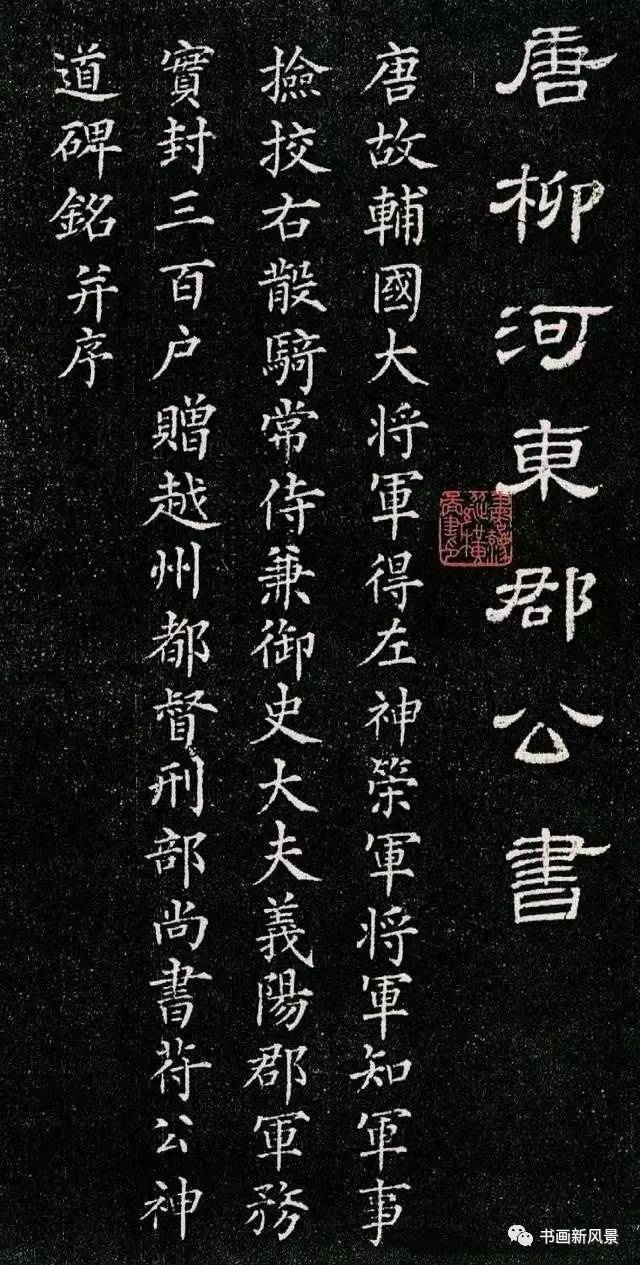 唐柳河東郡公書
唐故輔國大將軍得左神策軍將軍知軍事
撿挍右散騎常侍兼御史大夫義陽郡軍務
實封三百户贈越州都督刑部尚書苻公神
道碑銘并序
书画新风景